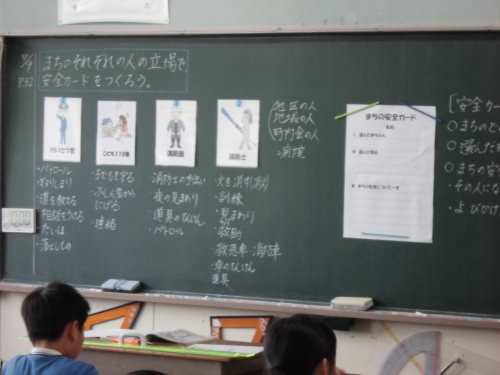 P.32
まちのそれぞれの人の立場で、
安全カードをつくろう。
けいさつ官
こども110番
消防団
消防士
・パトロール
・道を教える
・相談をうける
・たいほ
・落としもの
・子どもを守る
・ふしん者から
にげる
・連絡
・消防士の手伝い
・夜の見まわり
・道具のてんけん
・パトロール
・火を消す(消火)
・訓練
・見まわり
・救助
・救急車 消防車
・車のてんけん
道具
地区の人
地域の人
町内会の人
・病院
まちの安全カード
名前
選んだまちの人
選んだ理由
まちの安全について
[安全カ
○まちのと
○選んだ
○まちの安
・その人に
・よびかけ